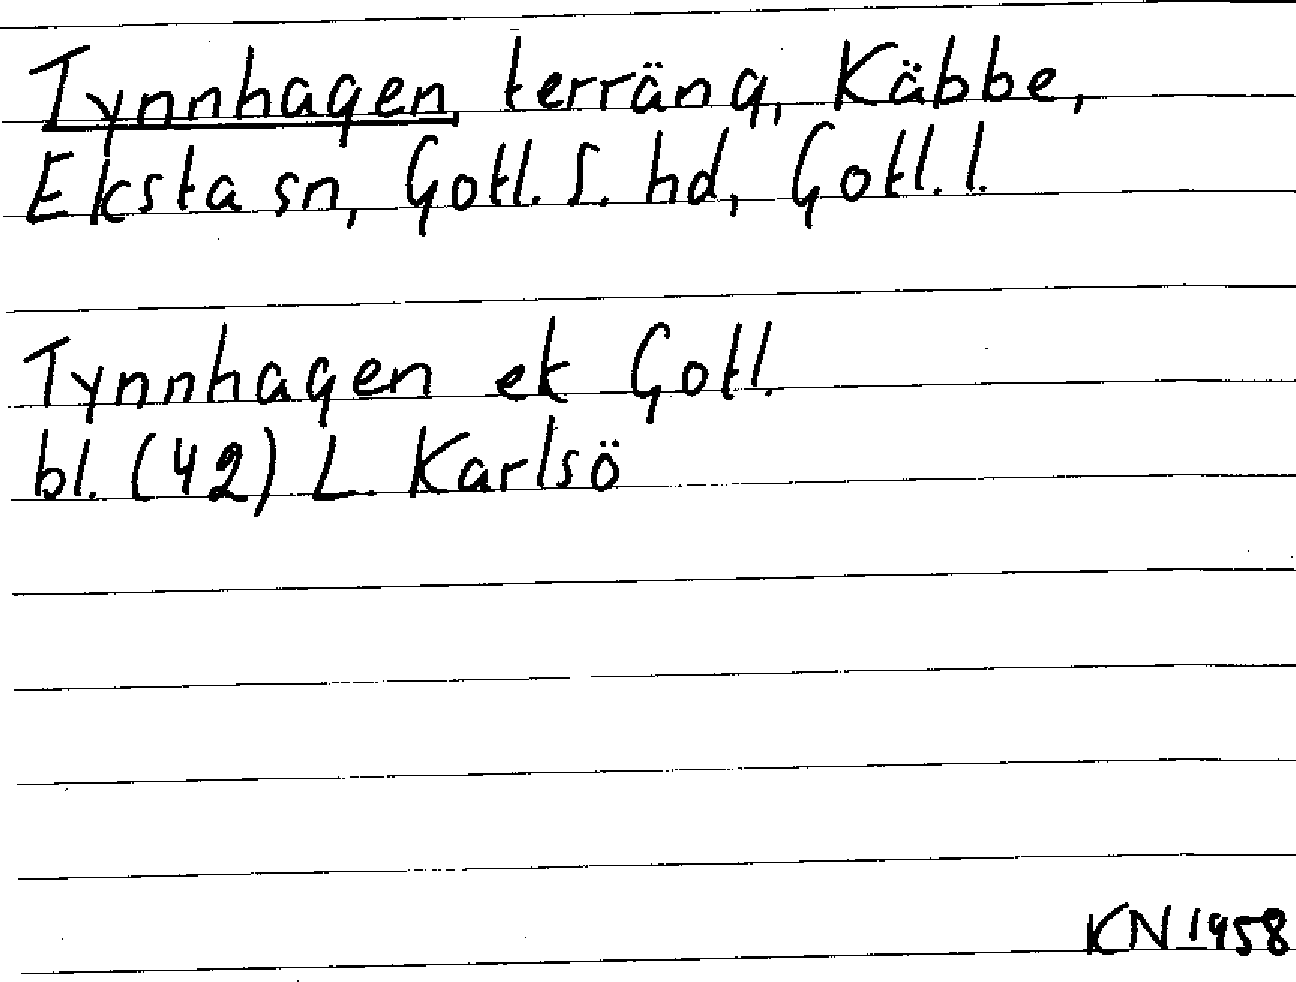 Tynnhagen, terräng, Käbbe,
Eksta sn, Gotl. S. hd, Gotl. l.
Tynnhagen ek Gotl.
bl. (42) L. Karlsö
KN 1958